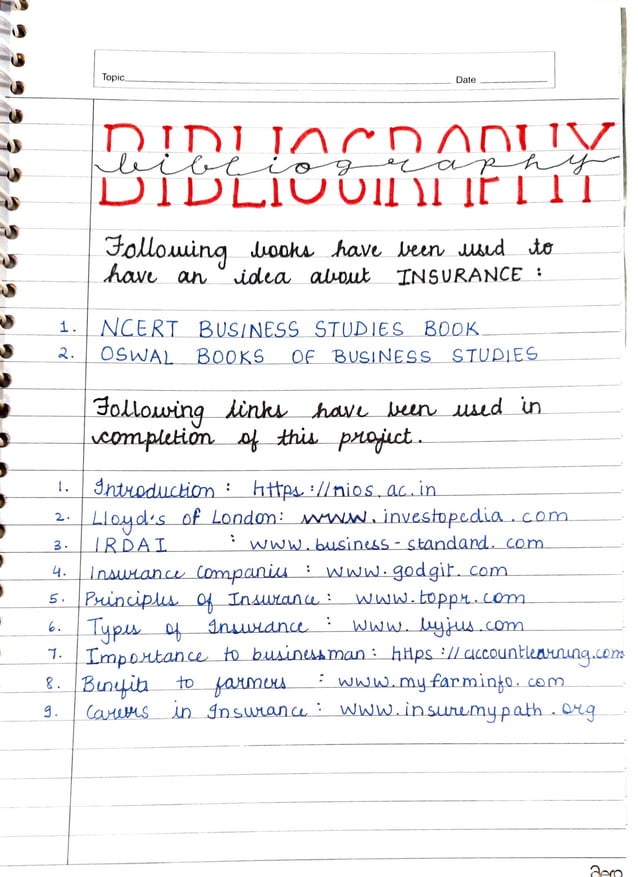 Topic Date
BIBLIOGRAPHY
bibliography
Following books have been used to
have an idea about INSURANCE :
1. NCERT BUSINESS STUDIES BOOK
2. OSWAL BOOKS OF BUSINESS STUDIES
Following links have been used in
completion of this project.
1. Introduction : https://nios.ac.in
2. Lloyd's of London: www.investopedia.com
3. IRDAI : www.business-standard.com
4. Insurance Companies : www.godgit.com
5. Principles of Insurance : www.toppr.com
6. Types of Insurance : www.byjus.com
7. Importance to businessman : https://accountlearning.com
8. Benefits to farmers : www.myfarminfo.com
9. Careers in Insurance : www.insuremypath.org
aero